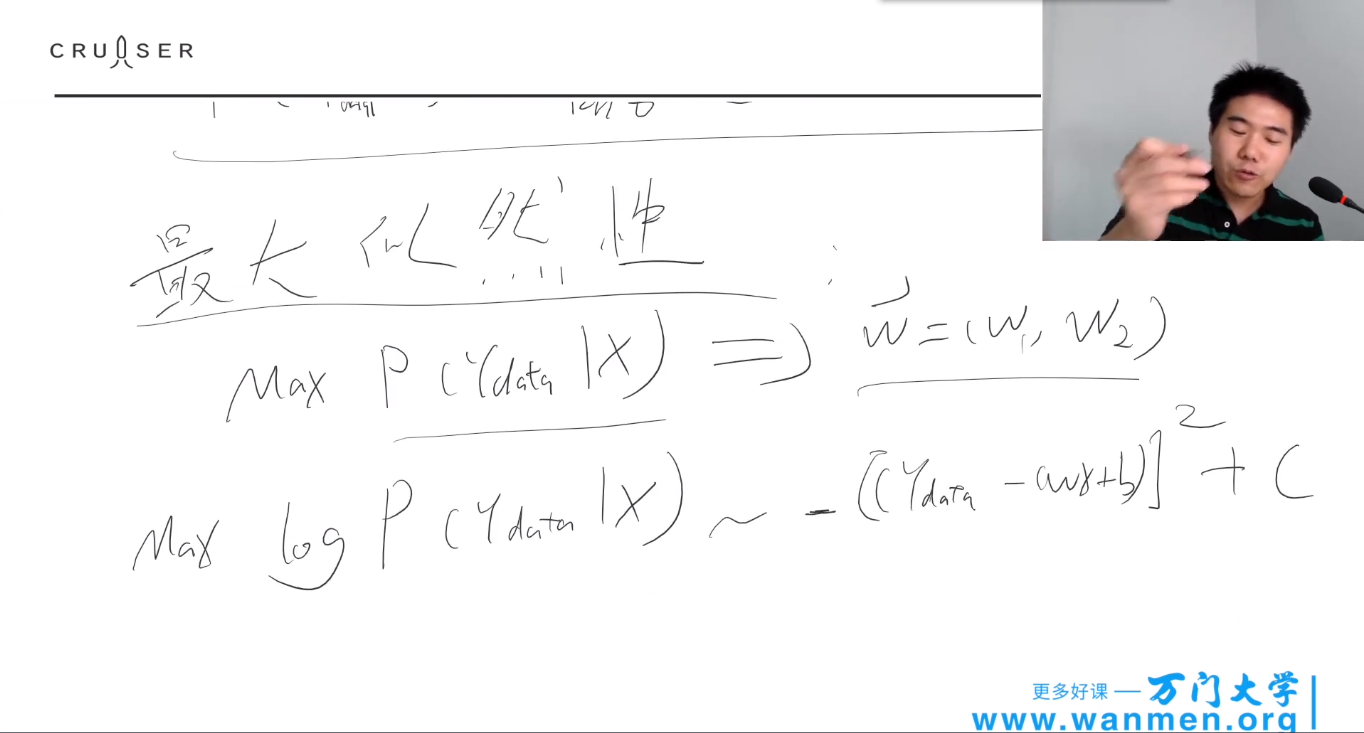 CRUISER
最大似然性:
Max P(Ydata|X) ⇒ w⃗=(W₁, W₂)
Max log P(Ydata|X) ~ -[(Ydata - (wx+b)]² + C
更多好课 — 万门大学
www.wanmen.org